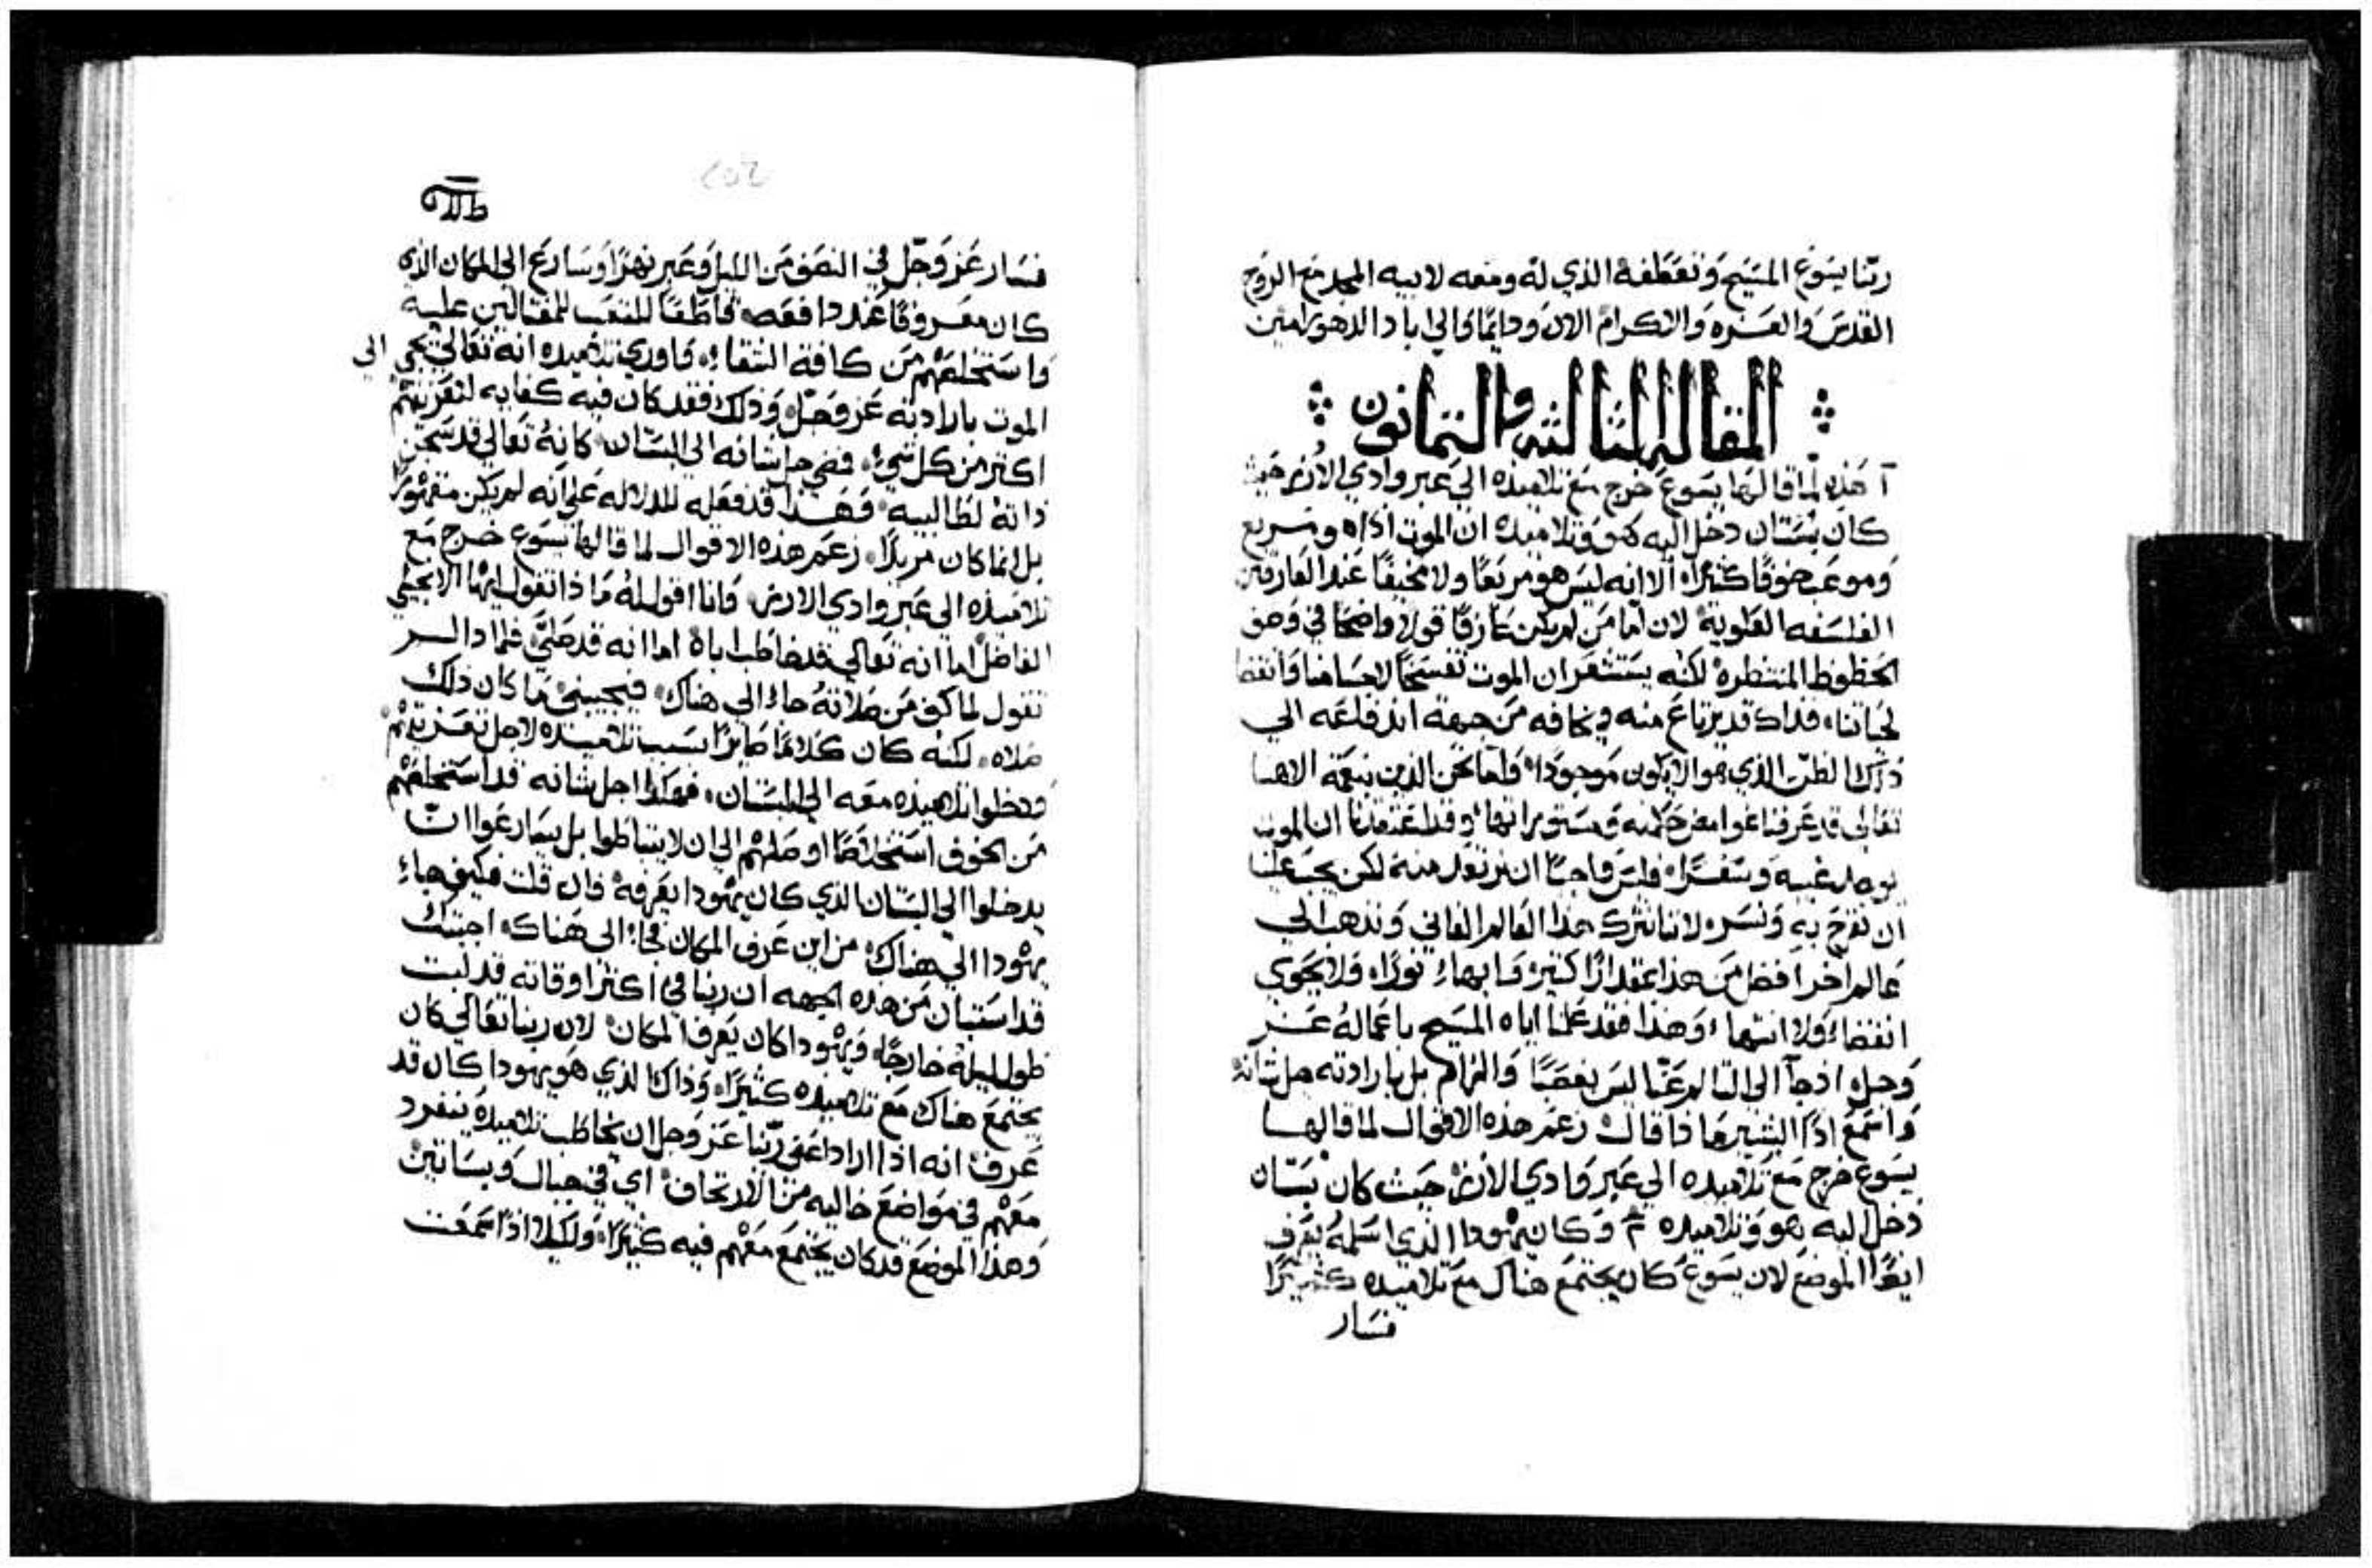 ربنا يسوع المسيح وتعطفه الذي له ومعه لابيه المجد مع الروح
القدس والعزه والاكرام الان ودايمًا والي اباد الدهور امين
المقاله الثالثه والثمانون
آ هذه لما قالها يسوع خرج مع تلاميذه الي عبر وادي الارز حيث
كان بستان دخل اليه هو وتلاميذه ان الموت اذا
خوفًا كثيرًا الا انه ليس هو مريعًا ولا مخيفًا عند العارفين
الفلسفه العلوية لان اما من لم يكن عارفًا قولا واضحًا في وصف
الحظوظ المنتظره لكنه يستشعر ان الموت تفسخًا لاجسامنا وانقضا
لحياتنا فذاك قد يرتاع منه ويخافه من جهة اندفاعه الي
ذاك الظن الذي هو الا يكون موجودًا واما نحن الذين بنعمة الاهنا
تعالي قد عرفنا غوامض حكمته ومستوراتها وقد اعتقدنا ان الموت
يوجد غيبه وسفرًا فليس واجبًا ان نرتعد منه لكن يجب علينا
ان نفرح به ونسر لاننا نترك هذا العالم الفاني ونذهب الي
عالم اخر افضل من هذا بمقدارًا كثير وابهاء نورًا ولا يحوي
انقضاء ولا انتها وهذا فقد علمنا اياه المسيح باعماله عز
وجل اذ جآ الي التالم عنا ليس بغصبًا والزام بل بارادته جل شانه
واسمع اذًا البشير ما ذا قال زعم هذه الاقوال لما قالها
يسوع خرج مع تلاميذه الي عبر وادي الارز حيث كان بستان
دخل اليه هو وتلاميذه وكان يهودا الذي اسلمه يعرف
ايضًا الموضع لان يسوع كان يجتمع هناك مع تلاميذه كثيرًا
فسار
فسار عز وجل في النصف من الليل وعبر نهرًا وسارع الي المكان الذي
كان معروفًا عند دافعه للتعب للمغتالين عليه
واستخلصهم من كافة الشقاء فاوري تلاميذه انه تعالي يجي الي
الموت بارادته عز وجل وذلك فقد كان فيه كفايه لتعزيتهم
اكثر من كل شيء فضي جل شانه الي البستان كانه تعالي قد سجن
ذاته لطالبيه فهذا قد فعله للدلاله علي انه لم يكن مقهورًا
بل انما كان مريدًا زعم هذه الاقوال لما قالها يسوع خرج مع
تلاميذه الي عبر وادي الارز وانا اقول له ما ذا تقول ايها الانجيلي
الفاضل اما انه تعالي قد خاطب اباه اما انه قد صلي فلما ذا لم
تقول لما كف من صلاته جاء الي هناك فيجيبني ما كان ذلك
صلاه لكنه كان كلامًا صايرًا بسبب تلاميذه لاجل تعزيتهم
ودخلوا تلاميذه معه الي البستان فهكذا جل شانه قد استخلصهم
من الخوف استخلاصًا اوصلهم الي ان لا يتباطوا بل يسارعوا ان
يدخلوا الي البستان الذي كان يهودا يعرفه فان قلت فكيف جاء
يهودا الي هناك من اين عرف المكان فجاء الي هناك اجبتك
قد استبان من هذه الجهه ان ربنا في اكثر اوقاته قد لبث
طول ليله خارجًا ويهودا كان يعرف المكان لان ربنا تعالي كان
يجتمع هناك مع تلاميذه كثيرًا وذاك الذي هو يهودا كان قد
عرف انه اذا اراد اعني ربنا عز وجل ان يخاطب تلاميذه ينفرد
معهم في مواضع خاليه من الارتجاف اي في جبال وبساتين
وهذا الموضع قد كان يجتمع معهم فيه كثيرًا ولكيلا اذا سمعت